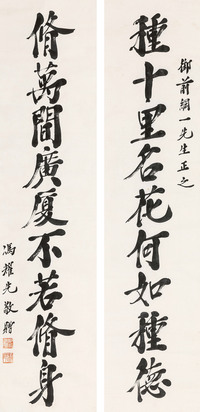 御前綱一先生正之
種十里名花何如種德
脩萬間廣廈不若脩身
馮耀先敬贈